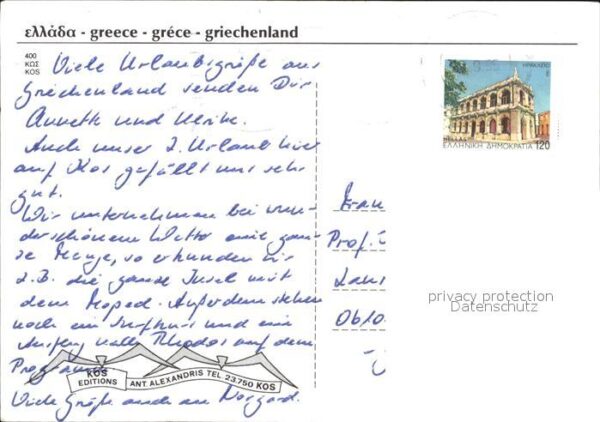 ελλάδα - greece - gréce - griechenland
400
ΚΩΣ
KOS
Viele Urlaubsgrüße aus
Griechenland senden Dir
Annette und Ulrike.
Auch unser 2. Urlaub hier
auf Kos gefällt uns sehr
gut.
Wir unternehmen bei wun-
derschönem Wetter eine gan-
ze Menge, so erkunden wir
z.B. die ganze Insel mit
dem Moped. Außerdem stehen
noch ein Surfkurs und ein
Ausflug nach Rhodos auf dem
Programm.
Viele Grüße auch an
KOS
EDITIONS
ANT. ALEXANDRIS TEL 23.750 KOS
ΗΡΑΚΛΕΙΟ
ΕΛΛΗΝΙΚΗ ΔΗΜΟΚΡΑΤΙΑ 120
Frau
Prof.
privacy protection
Datenschutz